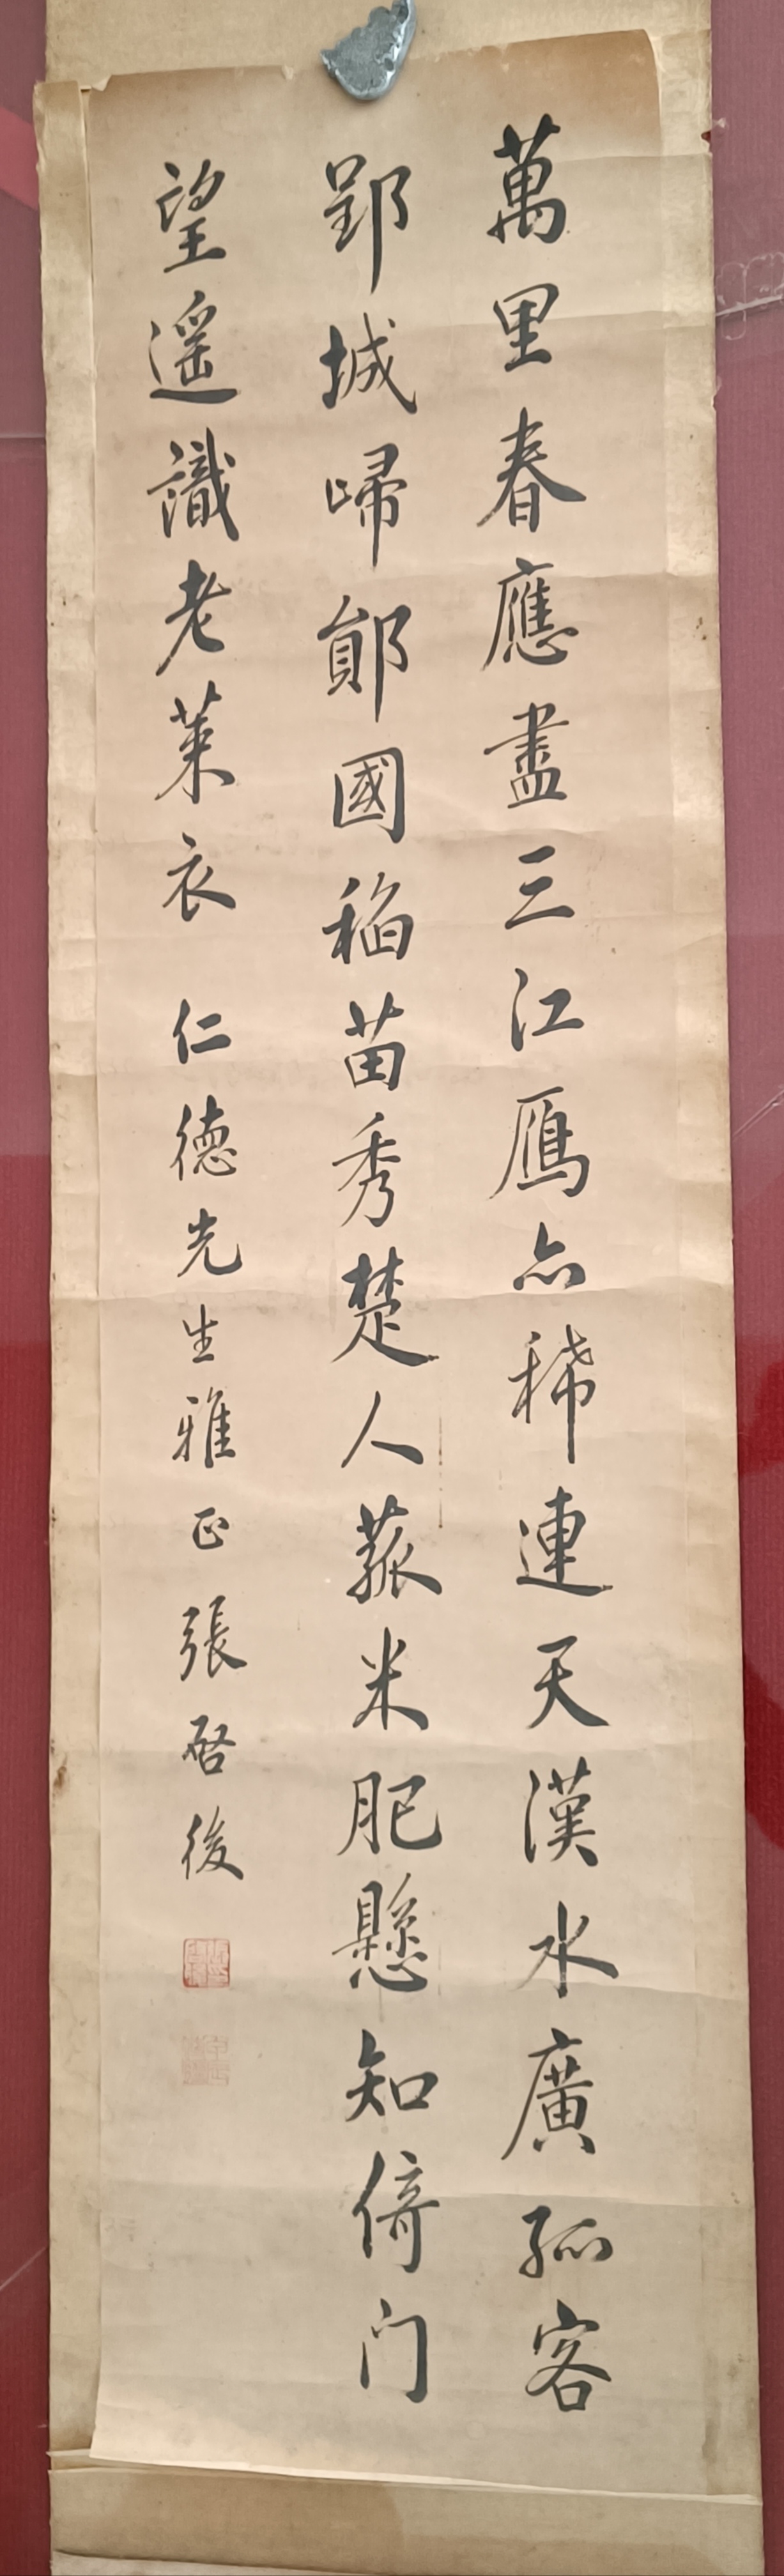 萬里春應盡三江鴈亦稀連天漢水廣孤客
郢城歸鄖國稻苗秀楚人菰米肥懸知倚门
望遥識老萊衣 仁德先生雅正 張啓後